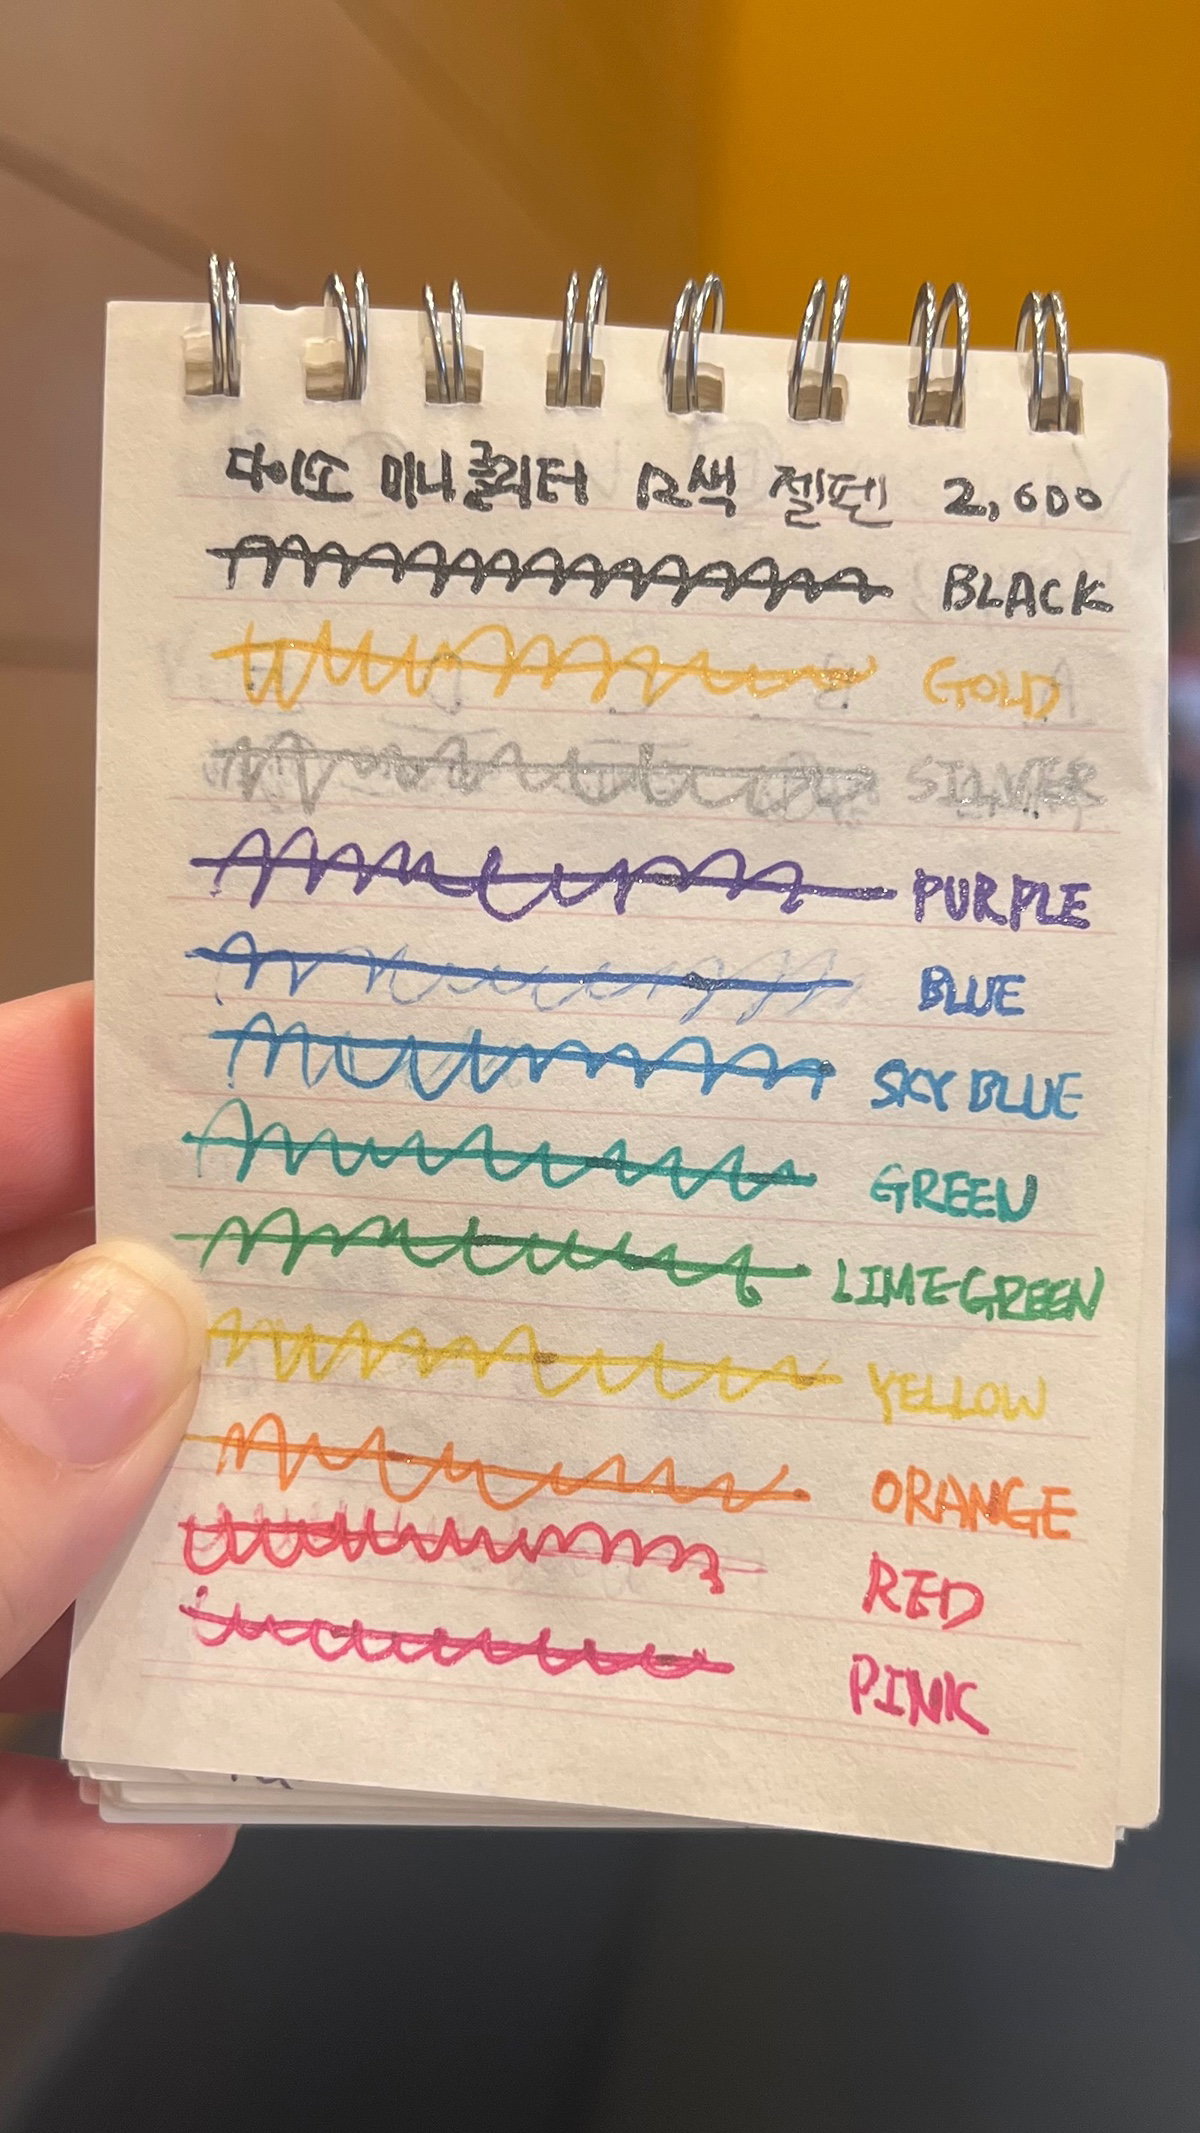 다이소 미니글리터 12색 젤펜 2,000
BLACK
GOLD
SILVER
PURPLE
BLUE
SKY BLUE
GREEN
LIME GREEN
YELLOW
ORANGE
RED
PINK